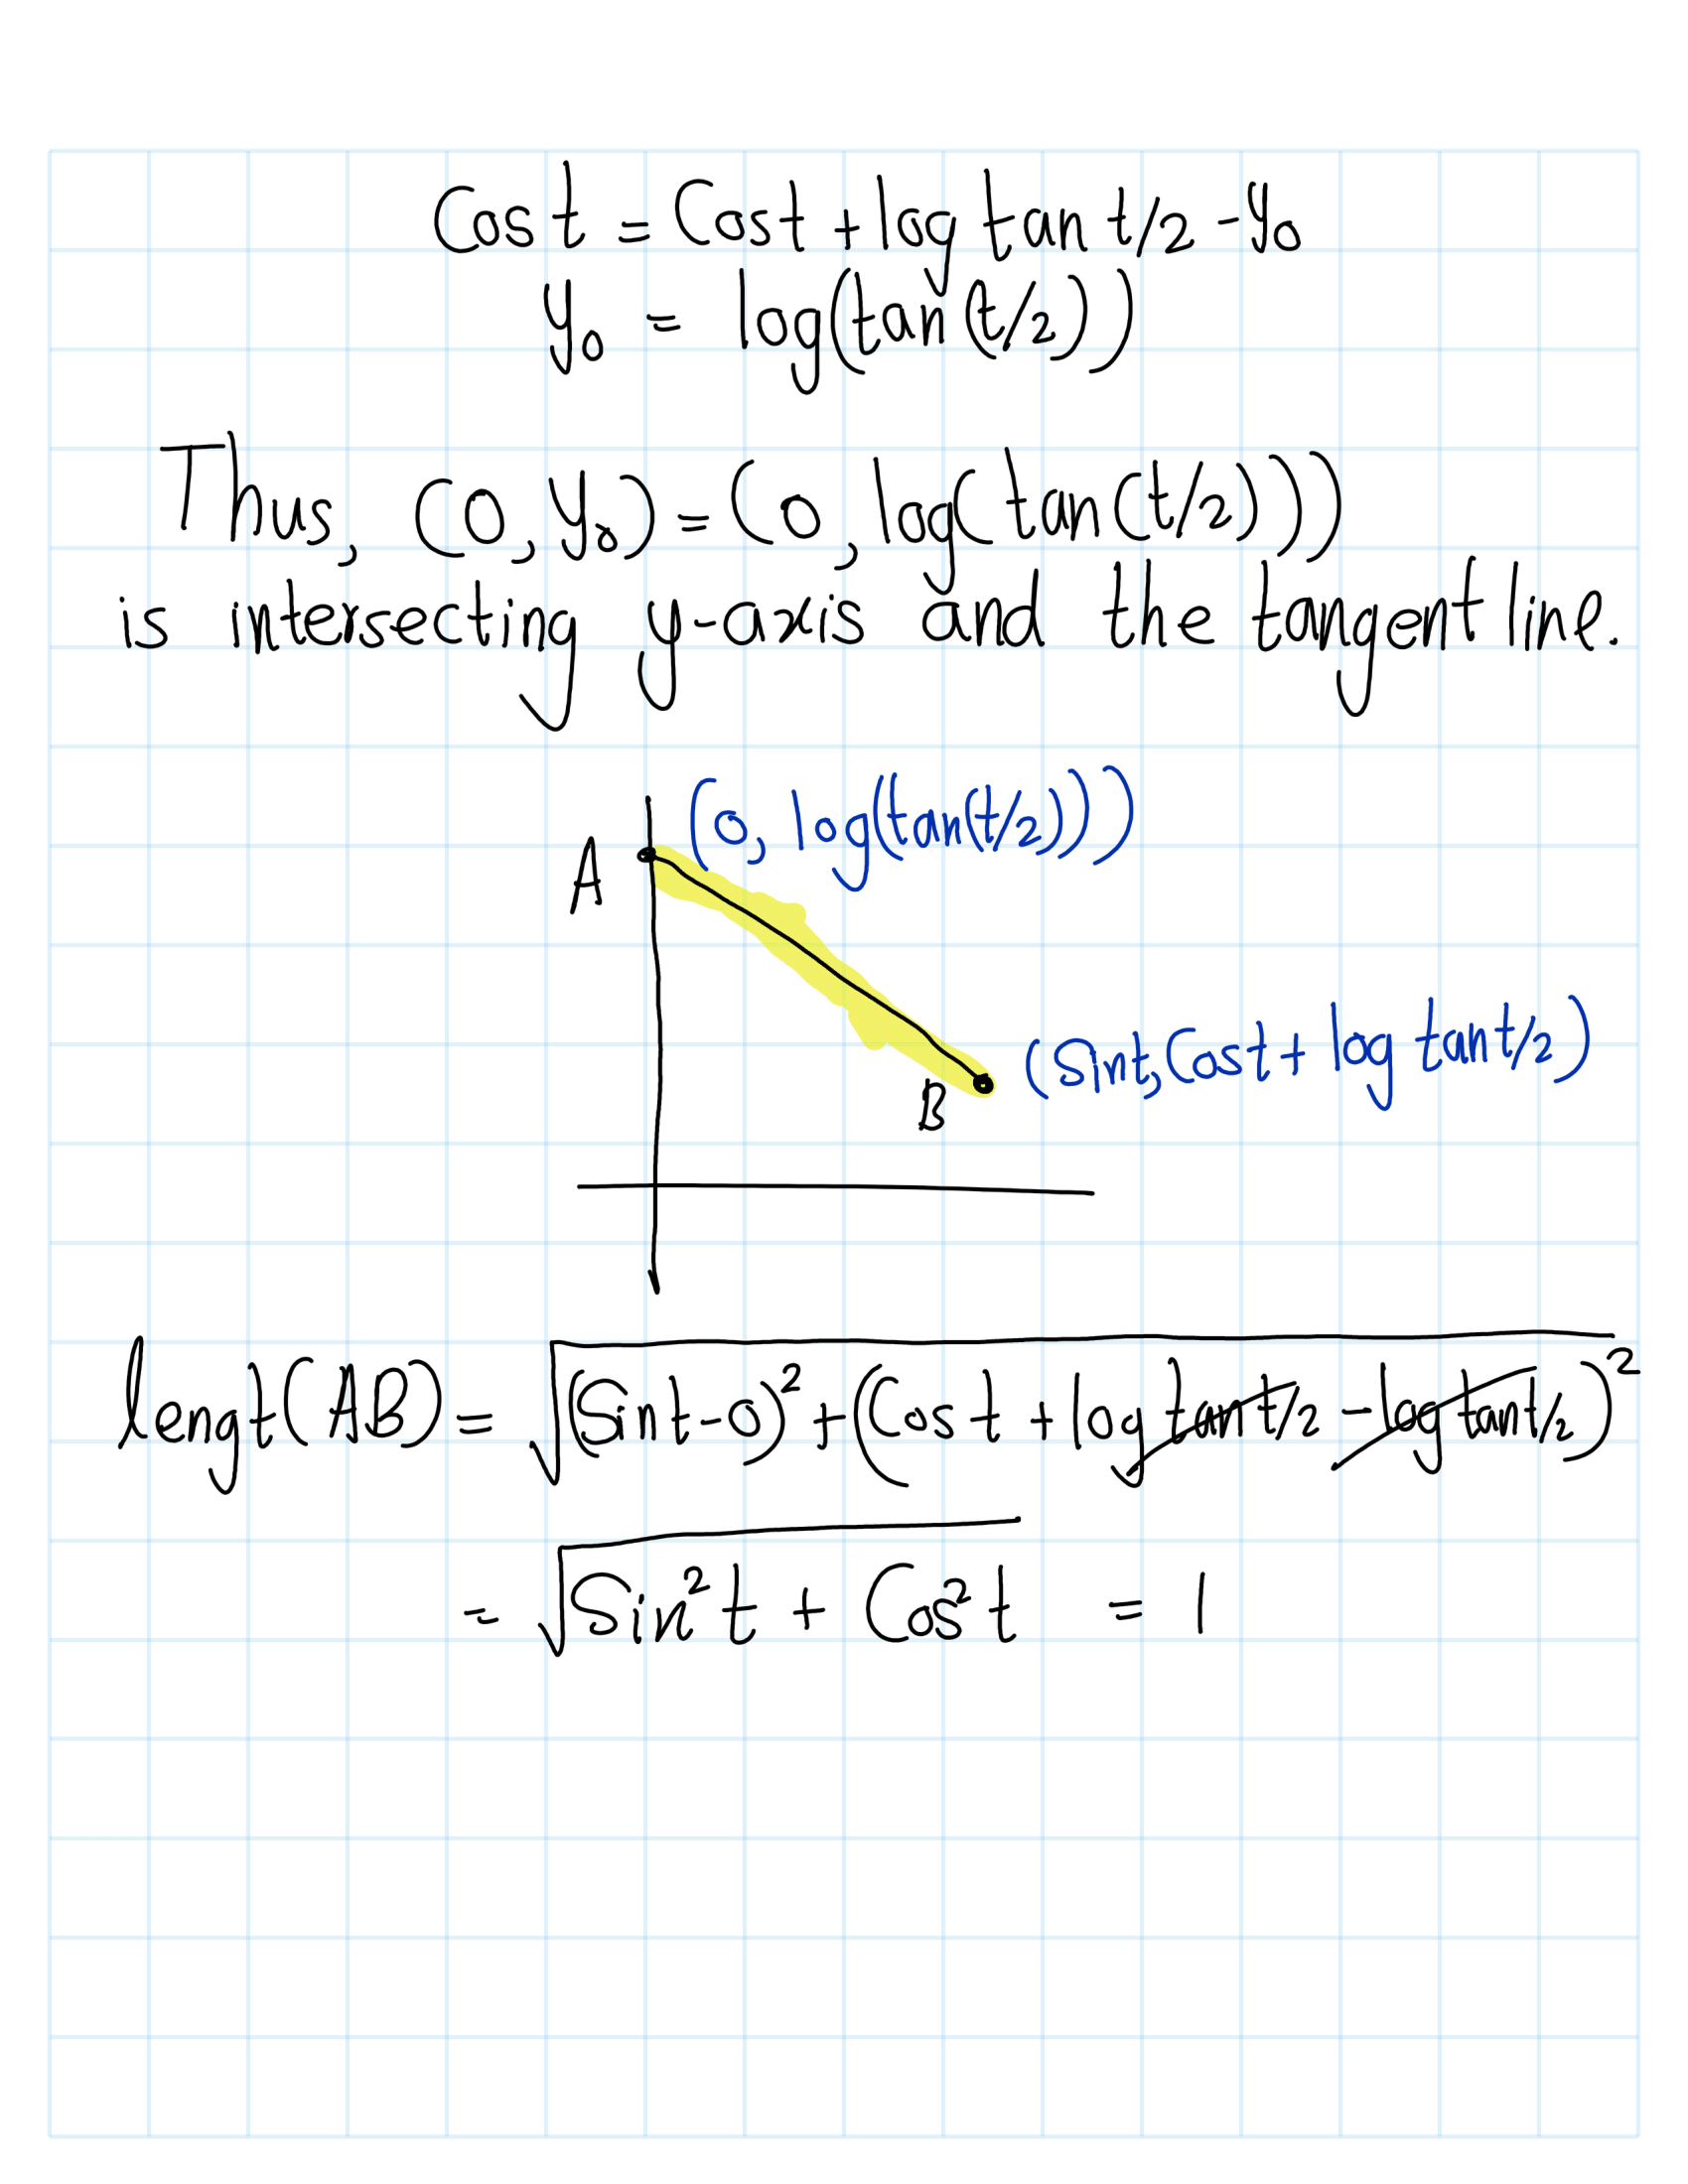 Cos t = Cos t + log tan t/2 - y₀
y₀ = log(tan(t/2))
Thus, (0, y₀) = (0, log(tan(t/2)))
is intersecting y-axis and the tangent line.
(0, log(tan(t/2)))
A
(Sint, Cost + log tan t/2)
B
lengt(AB) = √((Sint-0)² + (Cos t + log tan t/2 - log tan t/2)²)
= √(Sin²t + Cos²t) = 1